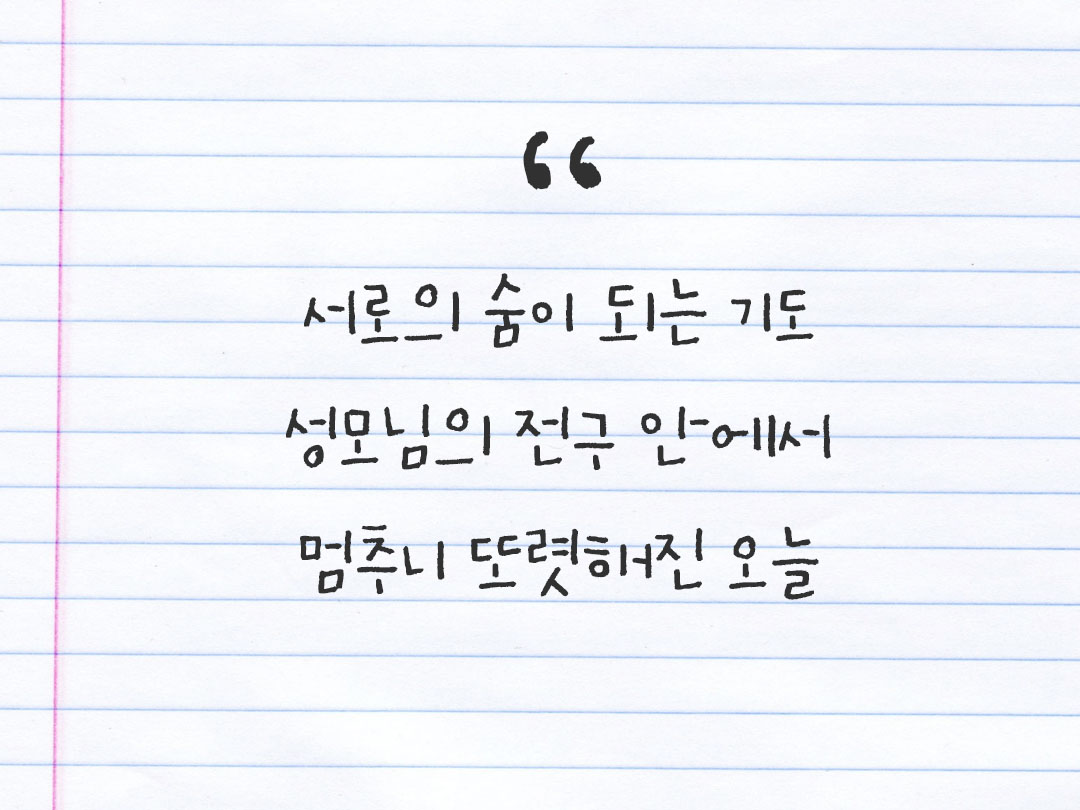 “
서로의 숨이 되는 기도
성모님의 전구 안에서
멈추니 또렷해진 오늘